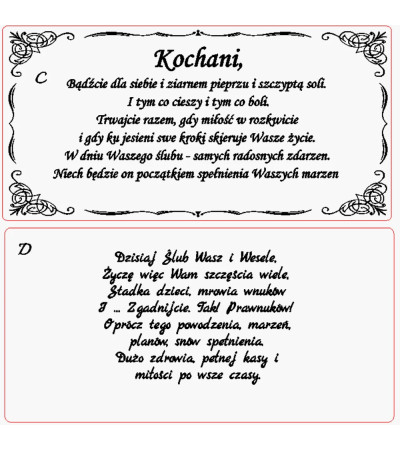 Kochani,
C
Bądźcie dla siebie i ziarnem pieprzu i szczyptą soli.
I tym co cieszy i tym co boli.
Trwajcie razem, gdy miłość w rozkwicie
i gdy ku jesieni swe kroki skieruje Wasze życie.
W dniu Waszego ślubu - samych radosnych zdarzen.
Niech będzie on początkiem spełnienia Waszych marzen
D
Dzisiaj Ślub Wasz i Wesele,
Życzę więc Wam szczęścia wiele,
Stadka dzieci, mrowia wnuków
I ... Zgadnijcie. Tak! Prawnuków!
Oprócz tego powodzenia, marzeń,
planów, snów spełnienia.
Dużo zdrowia, pełnej kasy i
miłości po wsze czasy.